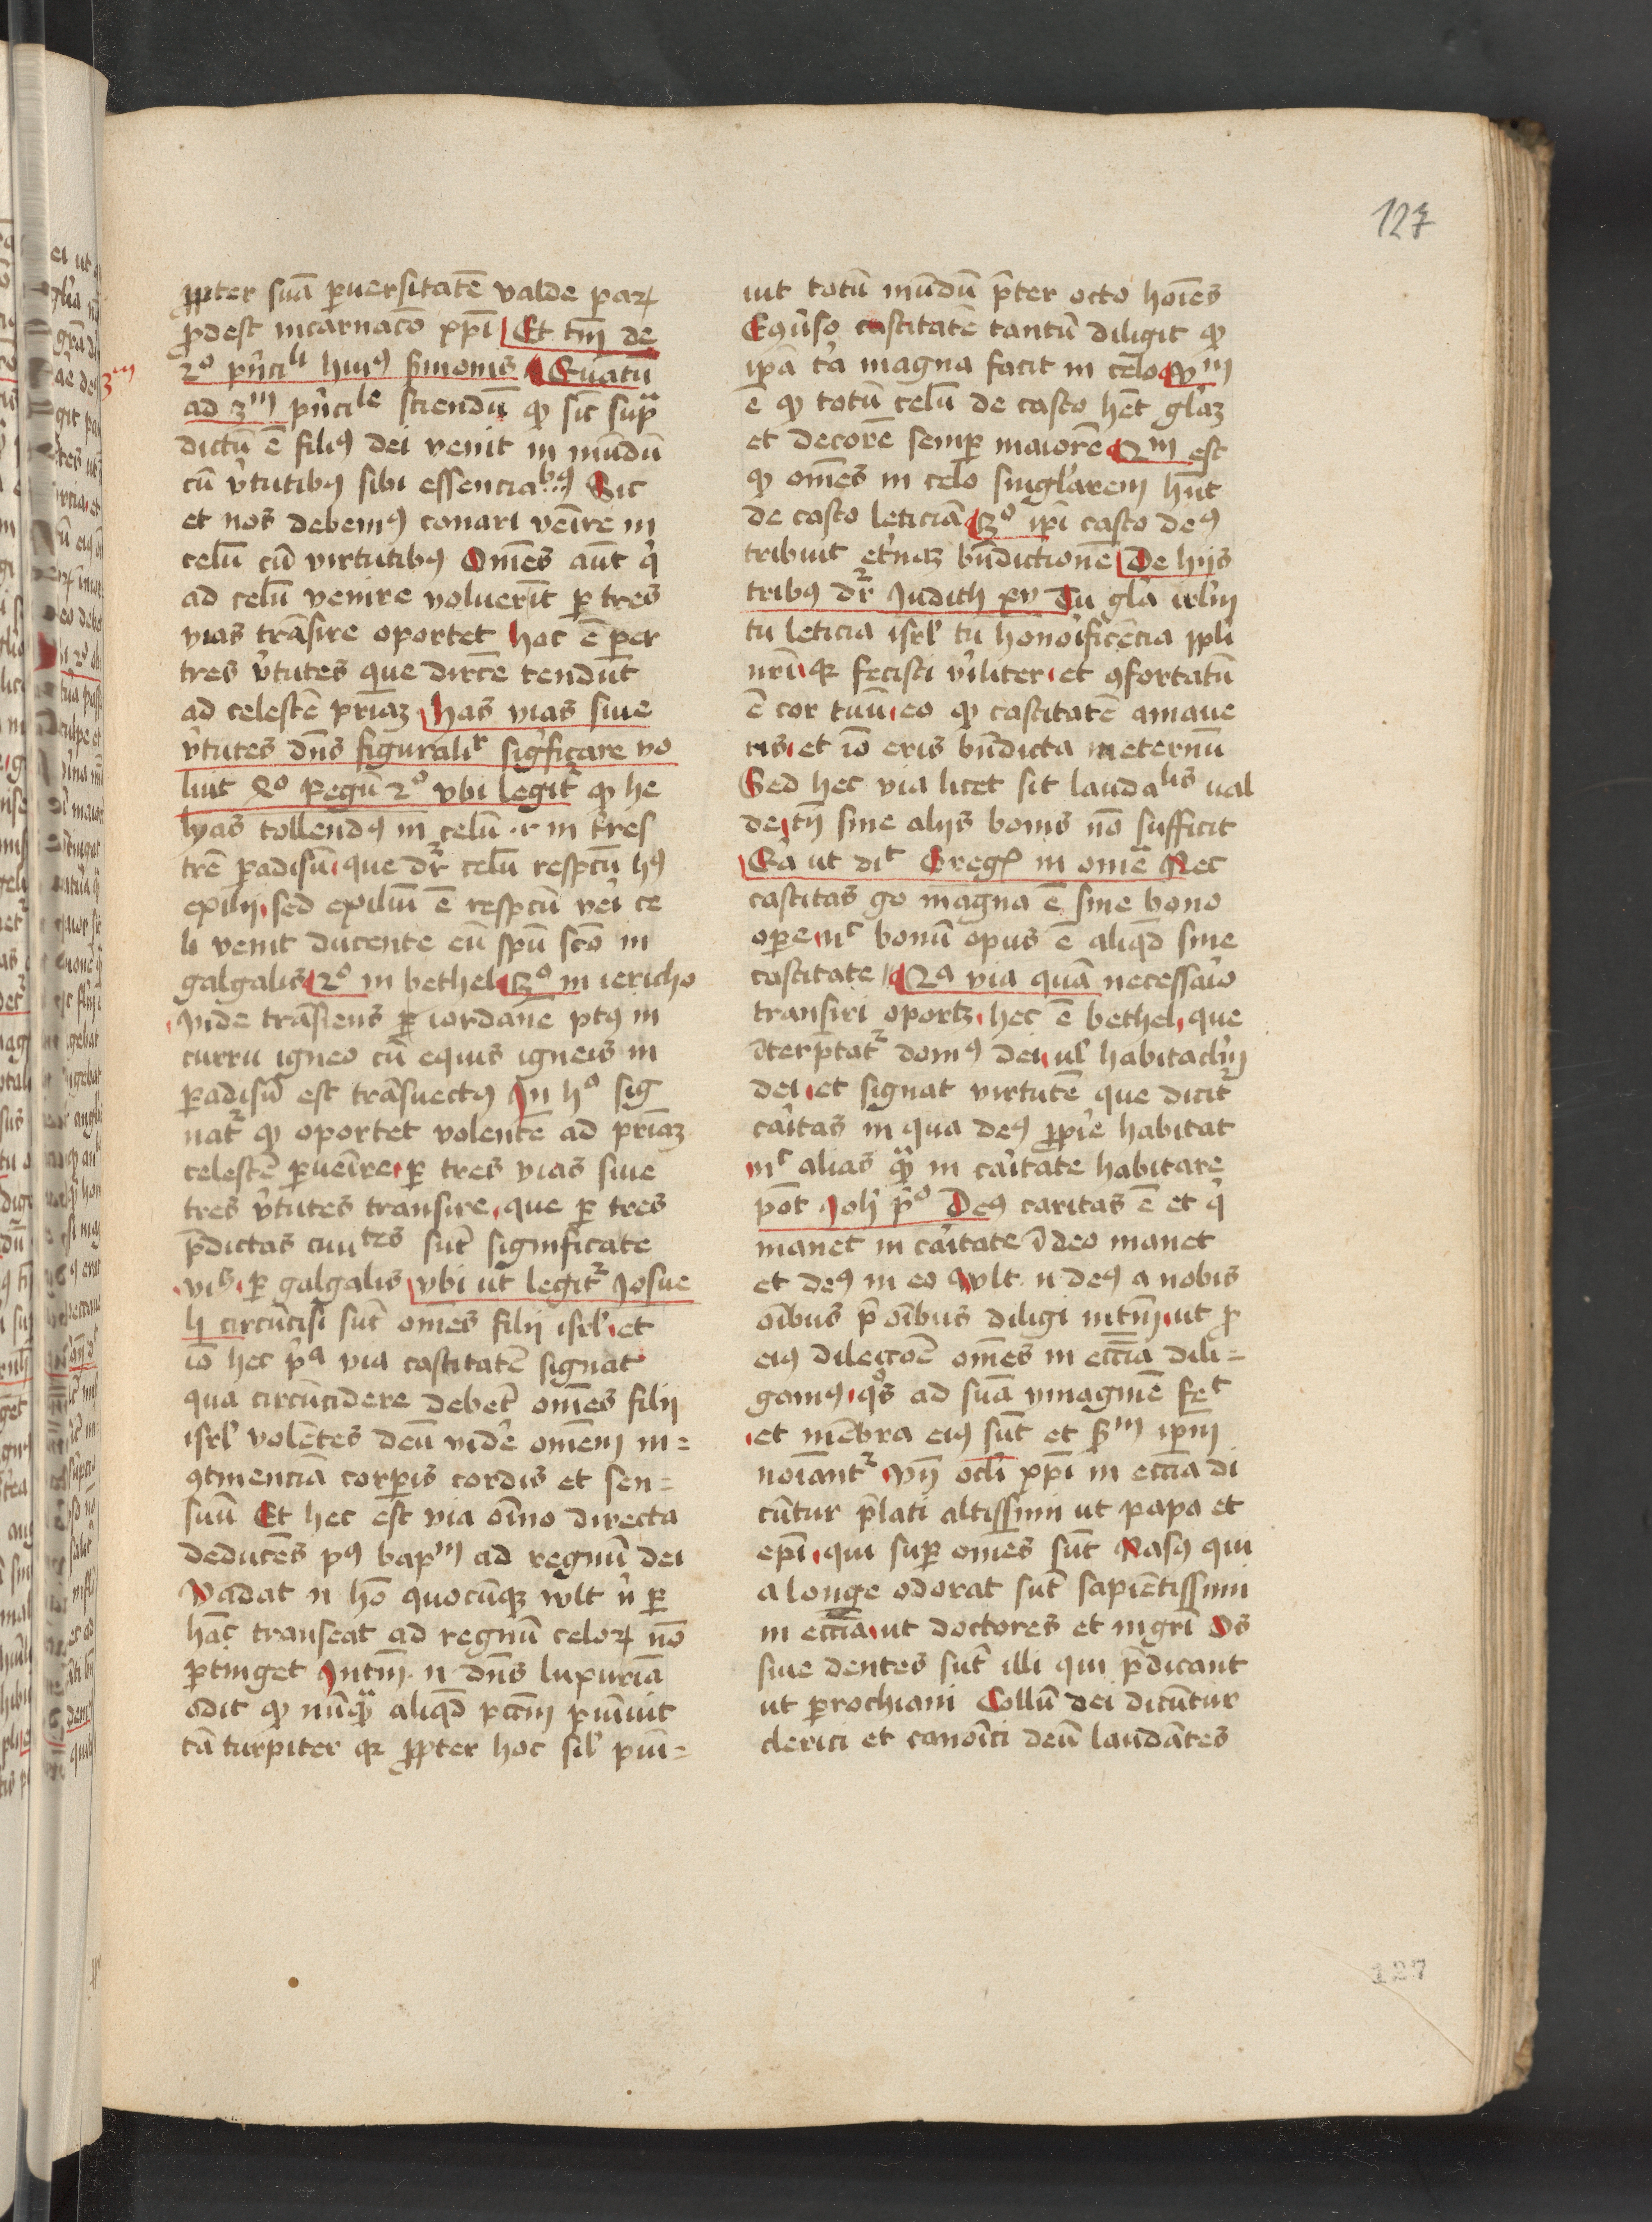 127
ꝓpter suā ꝑuersitatē valde parꝝ
ꝓdest incarnacō xpī Et tm̄ de
2º pn̄cili huiꝰ sermonis Quātū
3m
ad 3m pn̄cile sciendū ꝙ sic sup̄
dictū ē filiꝰ dei venit in mūdū
cū v̓tutibꝰ sibi essenciabꝰ Sic
et nos debemꝰ conari veīre in
celū cū virtutibꝰ Om̄es aūt q̓
ad celū venire voluerīt ꝑ tres
vias trāsire oportet hoc ē per
tres v̓tutes que dirc̄e tendūt
ad celestē pr̄iaꝫ has vias siue
v̓tutes dn̄s figuralir sig̓ficare vo
luit 4º Regū 2º vbi legitᷣ ꝙ he
lyas tollendꝰ in celū .i. in t̓res
trē ꝑadisū que dr̄ celū respc̄u hꝰ
exilij sed exiliū ē respc̄u vei̓ ce
li venit ducente eū spū sc̄o in
galgalis 2º in bethel 3º in iericho
Inde trāsiens ꝑ iordanē ptꝰ in
curru igneo cū equis igneis in
ꝑadisū est trāsuectꝰ In hº sig
natᷣ ꝙ oportet volentē ad pr̄iaꝫ
celestē ꝑueīre ꝑ tres vias siue
tres v̓tutes transire que ꝑ tres
p̄dictas ciuites sūt significate
vis ꝑ galgalis vbi ut legitᷣ Josue
li circūcisi sūt omēs filij isrl̓ et
iō hec p̓a via castitatē signat
qua circūcidere debēt om̄es filij
isrl̓ volētes deū vide̓ om̄em in=
ꝯtinenciā corꝑis cordis et sen=
suū Et hec est via oīno directa
deducēs pꝰ bapm ad regnū dei
Vadat n̄ hō quocūqꝫ wlt n̓ ꝑ
hāc transeat ad regnū celorꝝ nō
ꝑtinget Intm̄ n̄ dn̄s luxuriā
odit ꝙ nūqᷓ aliqd̄ pctm̄ puīuit
tā turpiter qꝫ ꝓpter hoc sil̓ pūi=
uit totū mūdū p̄ter octo hoīes
Eꝯu̓so castitatē tantū diligit ꝙ
ip̄a t̓a magna facit in celo Pm
ē ꝙ totū celū de casto hēt gl̓aꝫ
et decorē semꝑ maiorē 2m est
ꝙ om̄es in celo singl̓arem hn̄t
de casto leticiā 3º ip̄i casto deꝰ
tribuit et̓naꝫ bn̄dictionē De hijs
tribꝰ dr̄ Judith xv Tu gl̓a irl̓m
tu leticia isrl̓ tu honoi̓ficēcia ppl̓i
nr̄i qꝫ fecisti vi̓liter et ꝯfortatū
ē cor tuū eo ꝙ castitatē amaue
ris et iō eris bn̄dicta in eternū
Sed hec via licet sit laudalis ual
de tn̄ sine alijs bonis nō sufficit
Qa̓ ut dic̄ Gregꝰ in omē Nec
castitas go magna ē sine bono
oꝑe nc bonū opus ē aliqd̄ sine
castitate 2a via quā necessaīo
transiri oportꝫ hec ē bethel que
īterp̄tatᷣ domꝰ dei ul̓ habitacl̓m
dei et signat virtutē que dicitᷣ
cai̓tas in qua deꝰ ꝓpi̓e habitat
nc alias qᷓ in cai̓tate habitare
pōt Joh̓ p̓º Deꝰ caritas ē et q̓
manet in cai̓tate ī deo manet
et deꝰ in eo Wlt n̄ deꝰ a nobis
oībus p̄ oībus diligi intm̄ ut ꝓ
eiꝰ dilecc̄oē om̄es in ecc̄ia dili=
gamꝰ qᵒs ad suā ymaginē fec
et mēbra eiꝰ sūt et sm ip̄m
noīantᷣ Nn̄ ocl̓i xpī in ecc̄ia di
cūtur p̄lati altissimi ut papa et
ep̄i qui suꝑ om̄es sūt Nasꝰ qui
a longe odorat sūt sapiētissimi
in ecc̄ia ut doctores et mgr̄i Os
siue dentes sūt illi qui p̄dicant
ut ꝑrochiani Collū dei dicūtur
clerici et canoīci deū laudātes
127